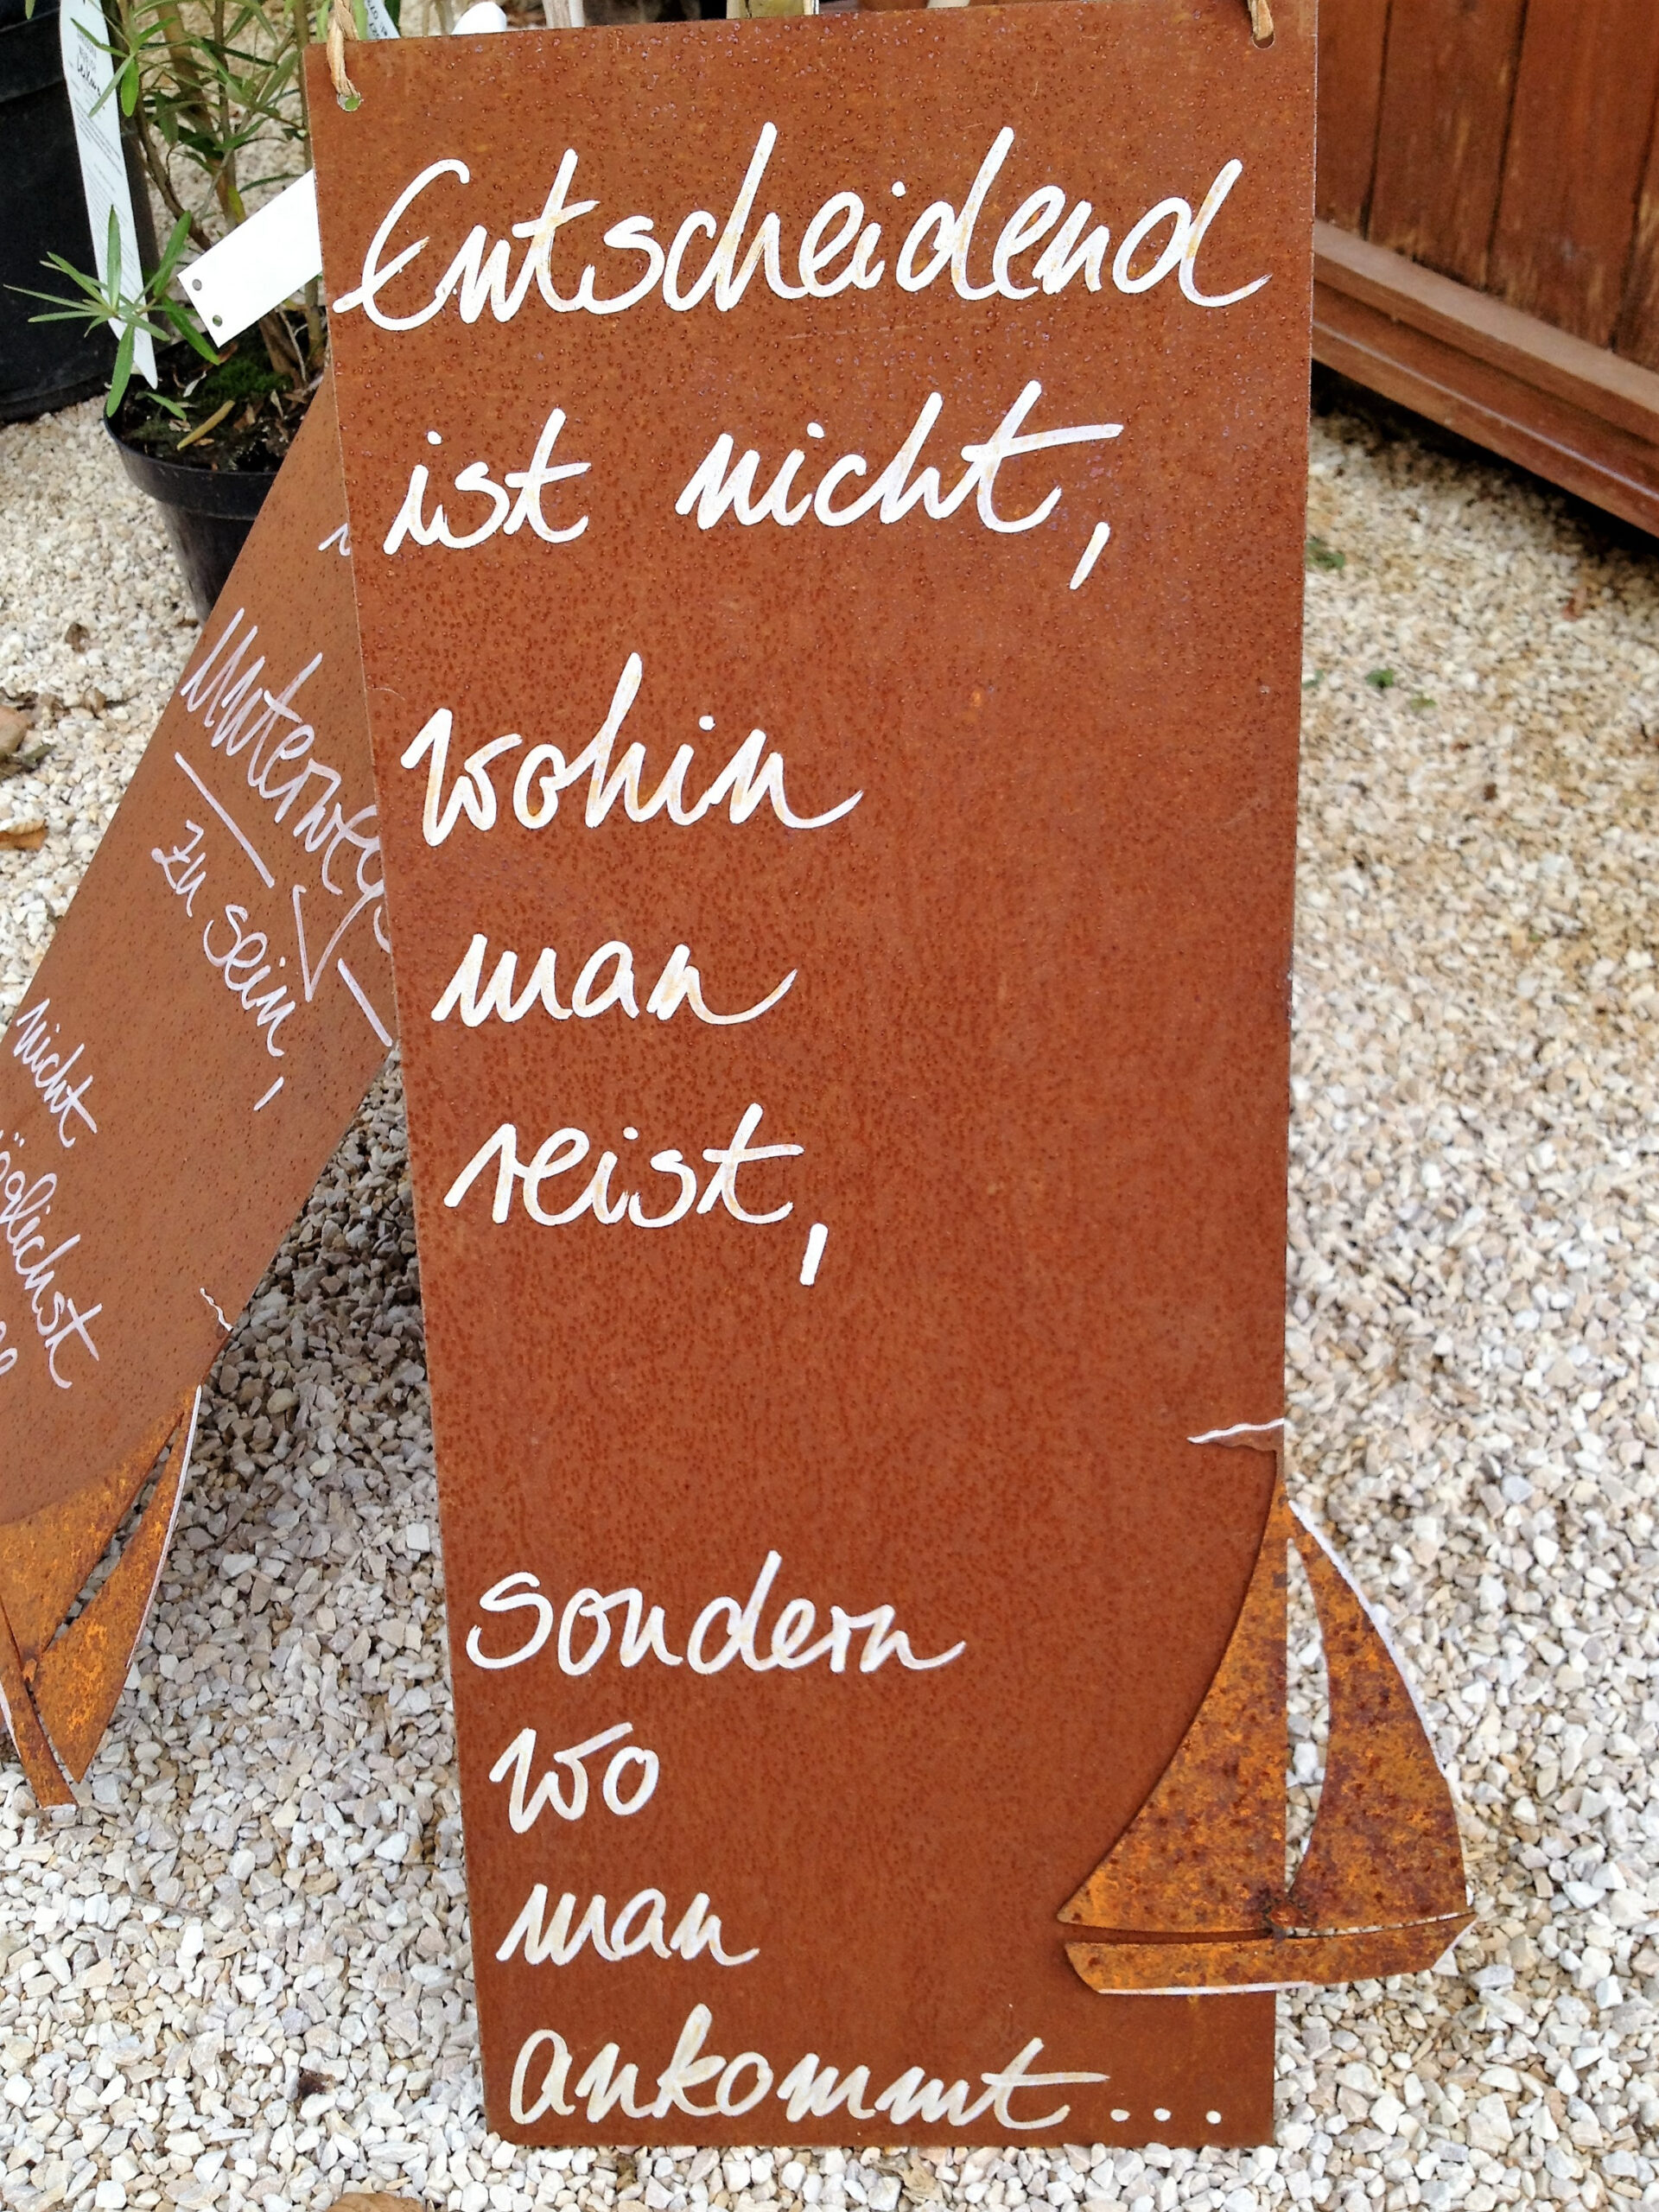 Entscheidend
ist nicht,
wohin
man
reist,
sondern
wo
man
ankommt...
Unterwegs
zu sein,
nicht